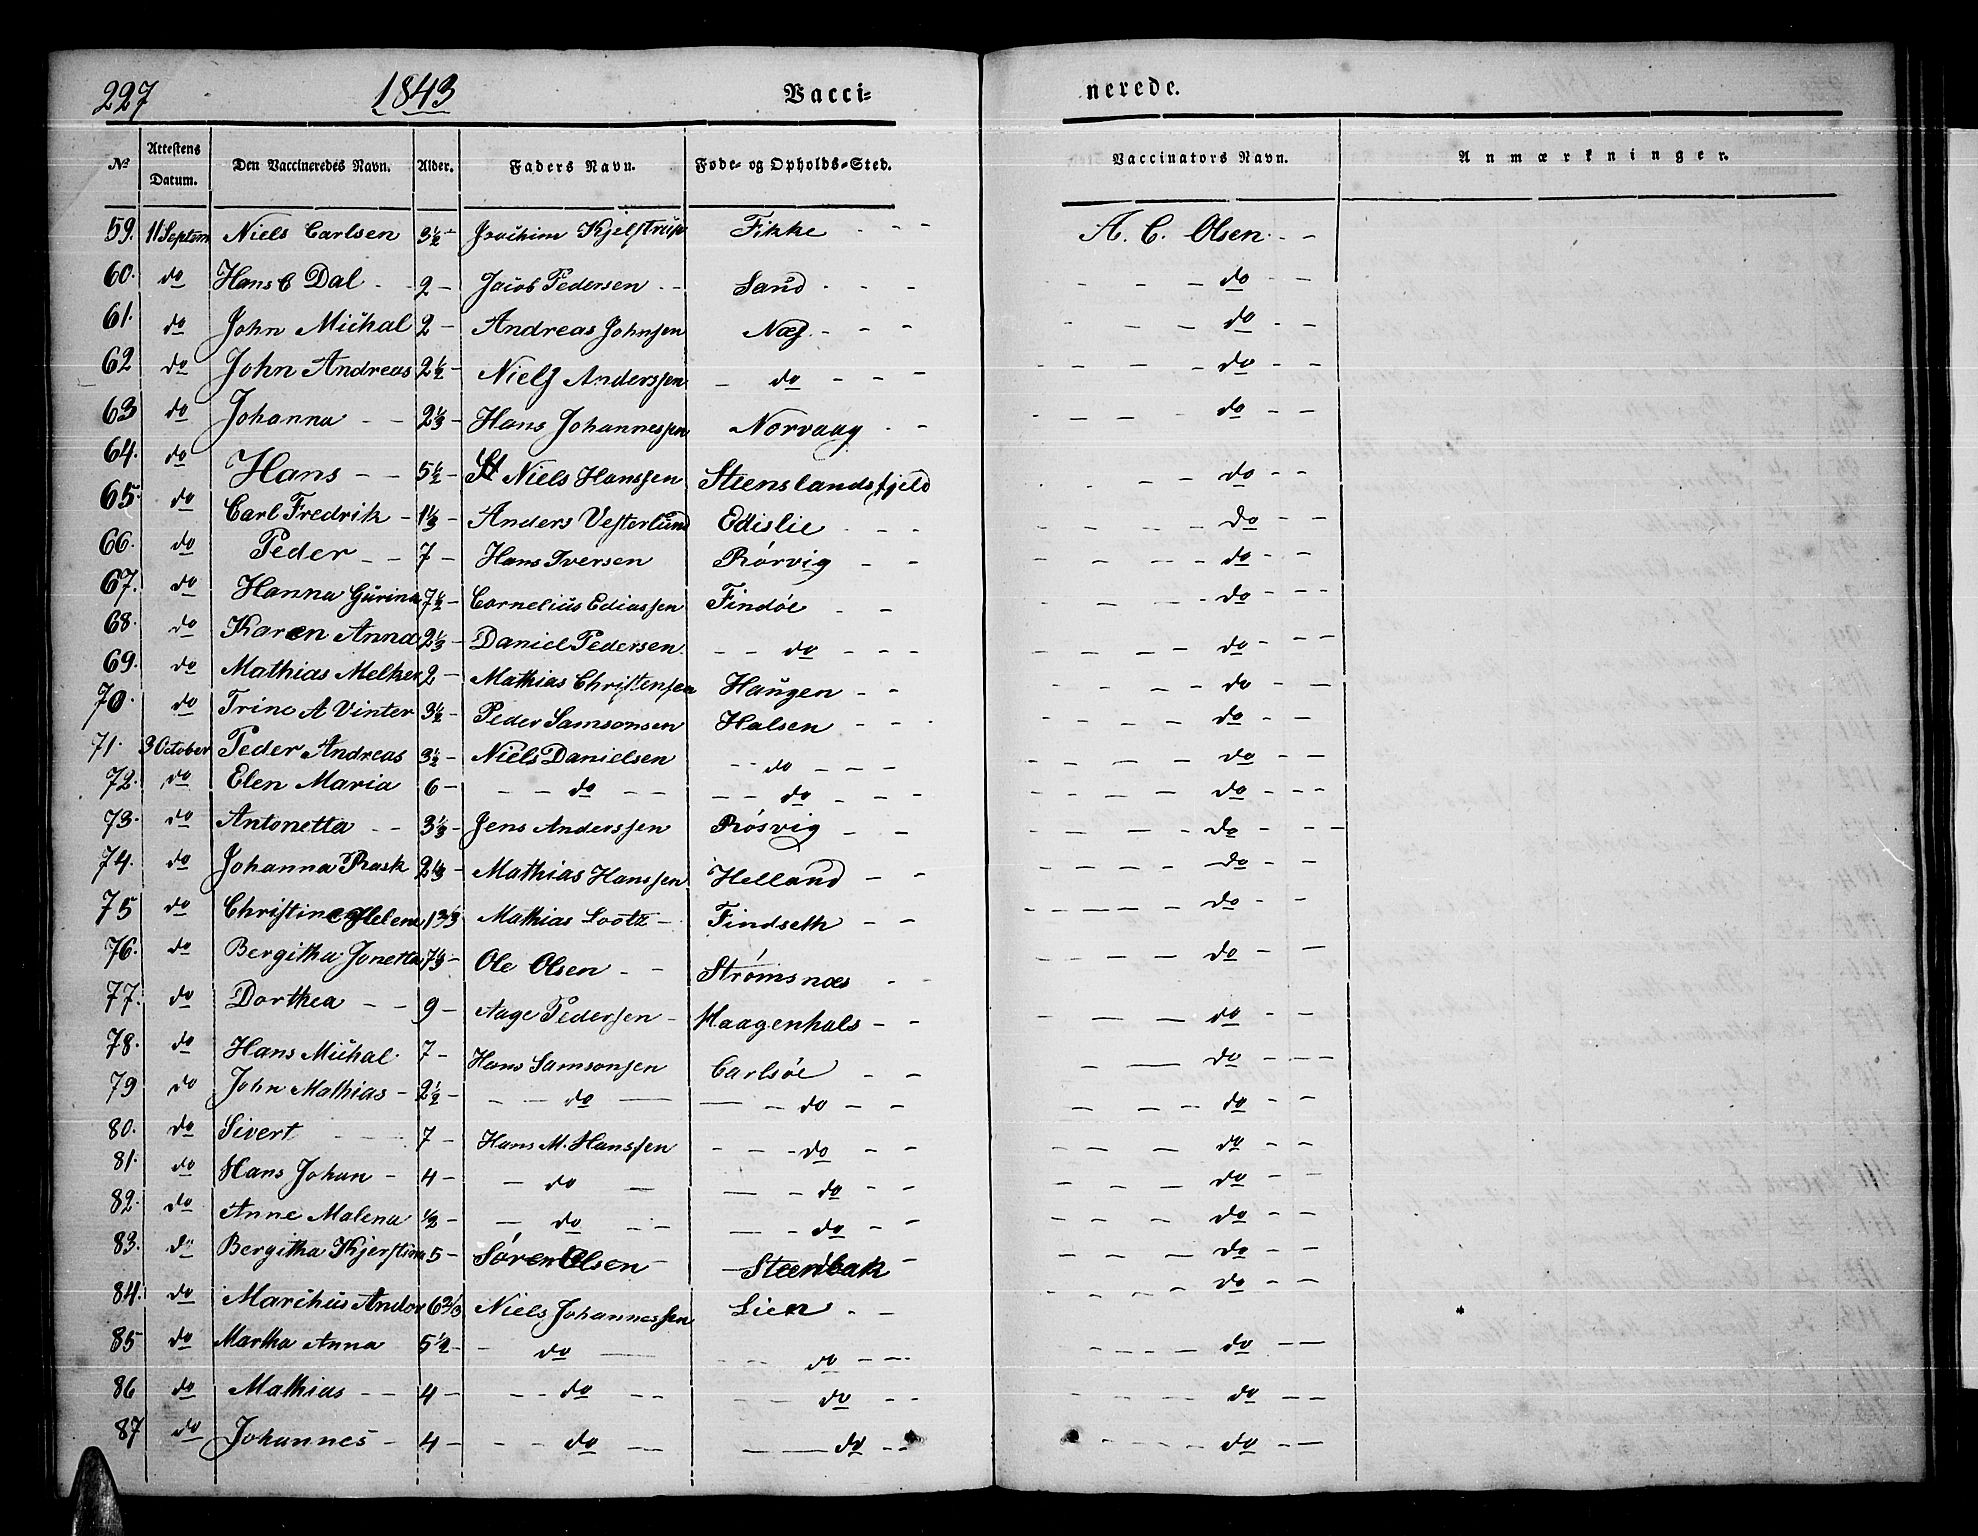 227 1843 Vacci- nerede.
No Attestens Datum. Den Vaccineredes Navn. Alder. Faders Navn. Føde- og Opholds-Sted. Vaccinators Navn. Anmærkninger.
59. 11 Septem Niels Carlsen 3½ - Joachim Kjelstrup Fikke - - - A. C. Olsen - -
60. do Hans C Dal - - 2 - Jacob Pedersen - - Sand - - - - - - do - -
61. do John Michal 2 - Andreas Johnsen Næs - - - - - - do - -
62 do John Andreas 2½ - Niels Anderssen - do - - - - - - - do - -
63 do Johanna - - 2⅓ - Hans Johannessen Norvaag - - - - - - do - -
64. do Hans - - 5½ - Niels Hanssen Steenslandsfjeld - - - - do - -
65. do Carl Fredrik - 1⅓ - Anders Vesterlund Edislie - - - - - - - do - -
66. do Peder - - 7 - Hans Iversen Rórvig - - - - - - do - -
67. do Hanna Gurina 7½ - Cornelius Ediassen Findöe - - - - - - do - -
68. do Karen Anna 2⅓ - Daniel Pedersen - - do - - - - - - - do - - -
69. do Mathias Melker 2 - Mathias Christensen Haugen - - - - - - do - -
70. do Trine A Vinter 3½ - Peder Samsonsen Halsen - - - - - - - do - -
71. 3 October Peder Andreas 3½ - Niels Danielsen - - do - - - - - - - do - -
72. do Elen Maria 6 - - - do - - - - do - - - - - - - do - - -
73. do Antonetta - - 3⅓ - Jens Anderssen Rósvig - - - - - - do - - -
74. do Johanna Rask 2⅓ - Mathias Hanssen Helland - - - - - - do - -
75 do Christine Helene 1⅔ Mathias Lootz - Findseth - - - - - - - do - -
76. do Bergitha Jonetta 7⅓ - Ole Olsen - - Strømsnæs - - - - - - do - -
77. do Dorthea - - 9 - Aage Pedersen - Haagenhals - - - - - do - -
78. do Hans Michal 7 - Hans Samsonsen Carlsöe - - - - do - - -
79 do John Mathias - 2½ - - - do - - - do - - - - - - do - -
80. do Sivert - - - 7 - Hans M. Hanssen - - - do - - - - - - do - -
81. do Hans Johan - 4 - - do - - - do - - - - - - do - -
82. do Anne Malena ½ - - do - - - - do - - - - - - do - -
83. do Bergitha Kjerstina 5 - Søren Olsen - - Steenbak - - - - - do - -
84. do Marihus Andor 6⅔ Niels Johannessen Lien - - - - - - do - -
85 do Martha Anna 5½ - - do - - - do - - - - - - do - -
86 do Mathias - - 4 - - - do - - - - do - - - - - - do - -
87 do Johannes - 4 - - - do - - - do - - - - - - do - -